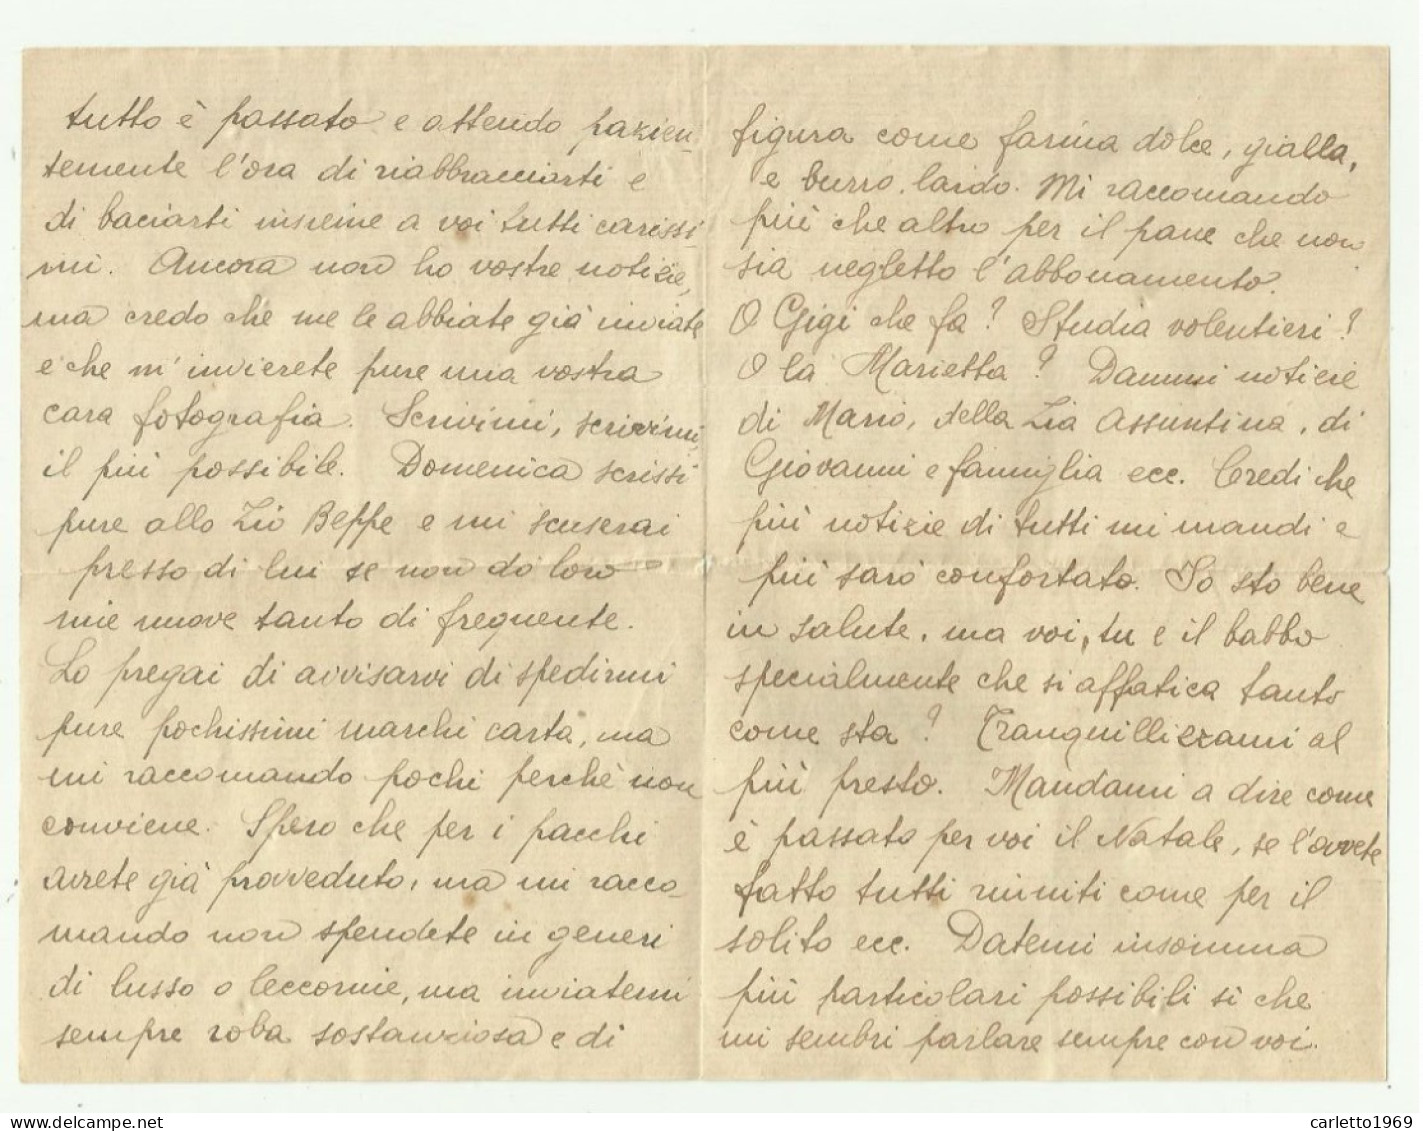 tutto è passato e attendo pazien-
temente l'ora di riabbracciarti e
di baciarti insieme a voi tutti carissi-
mi. Ancora non ho vostre notizie,
ma credo che me le abbiate già inviate
e che m'invierete pure una vostra
cara fotografia. Scrivimi, scrivimi
il più possibile. Domenica scrissi
pure allo Zio Beppe e mi scuserai
presso di lui se non do loro
mie nuove tanto di frequente.
Lo pregai di avvisarvi di spedirmi
pure pochissimi marchi carta, ma
mi raccomando pochi perchè non
conviene. Spero che per i pacchi
avrete già provveduto, ma mi racco-
mando non spendete in generi
di lusso o leccornie, ma inviatemi
sempre roba sostanziosa e di
figura come farina dolce, gialla,
e burro, lardo. Mi raccomando
più che altro per il pane che non
sia negletto l'abbonamento.
O Gigi che fa? Studia volentieri?
O la Marietta? Dammi notizie
di Mario, della Zia Assuntina, di
Giovanni e famiglia ecc. Credi che
più notizie di tutti mi mandi e
più sarò confortato. Io sto bene
in salute, ma voi, tu e il babbo
specialmente che si affatica tanto
come sta? Tranquillizzami al
più presto. Mandami a dire come
è passato per voi il Natale, se l'avete
fatto tutti riuniti come per il
solito ecc. Datemi insomma
più particolari possibili sì che
mi sembri parlare sempre con voi.
delcampe.net
carletto1969